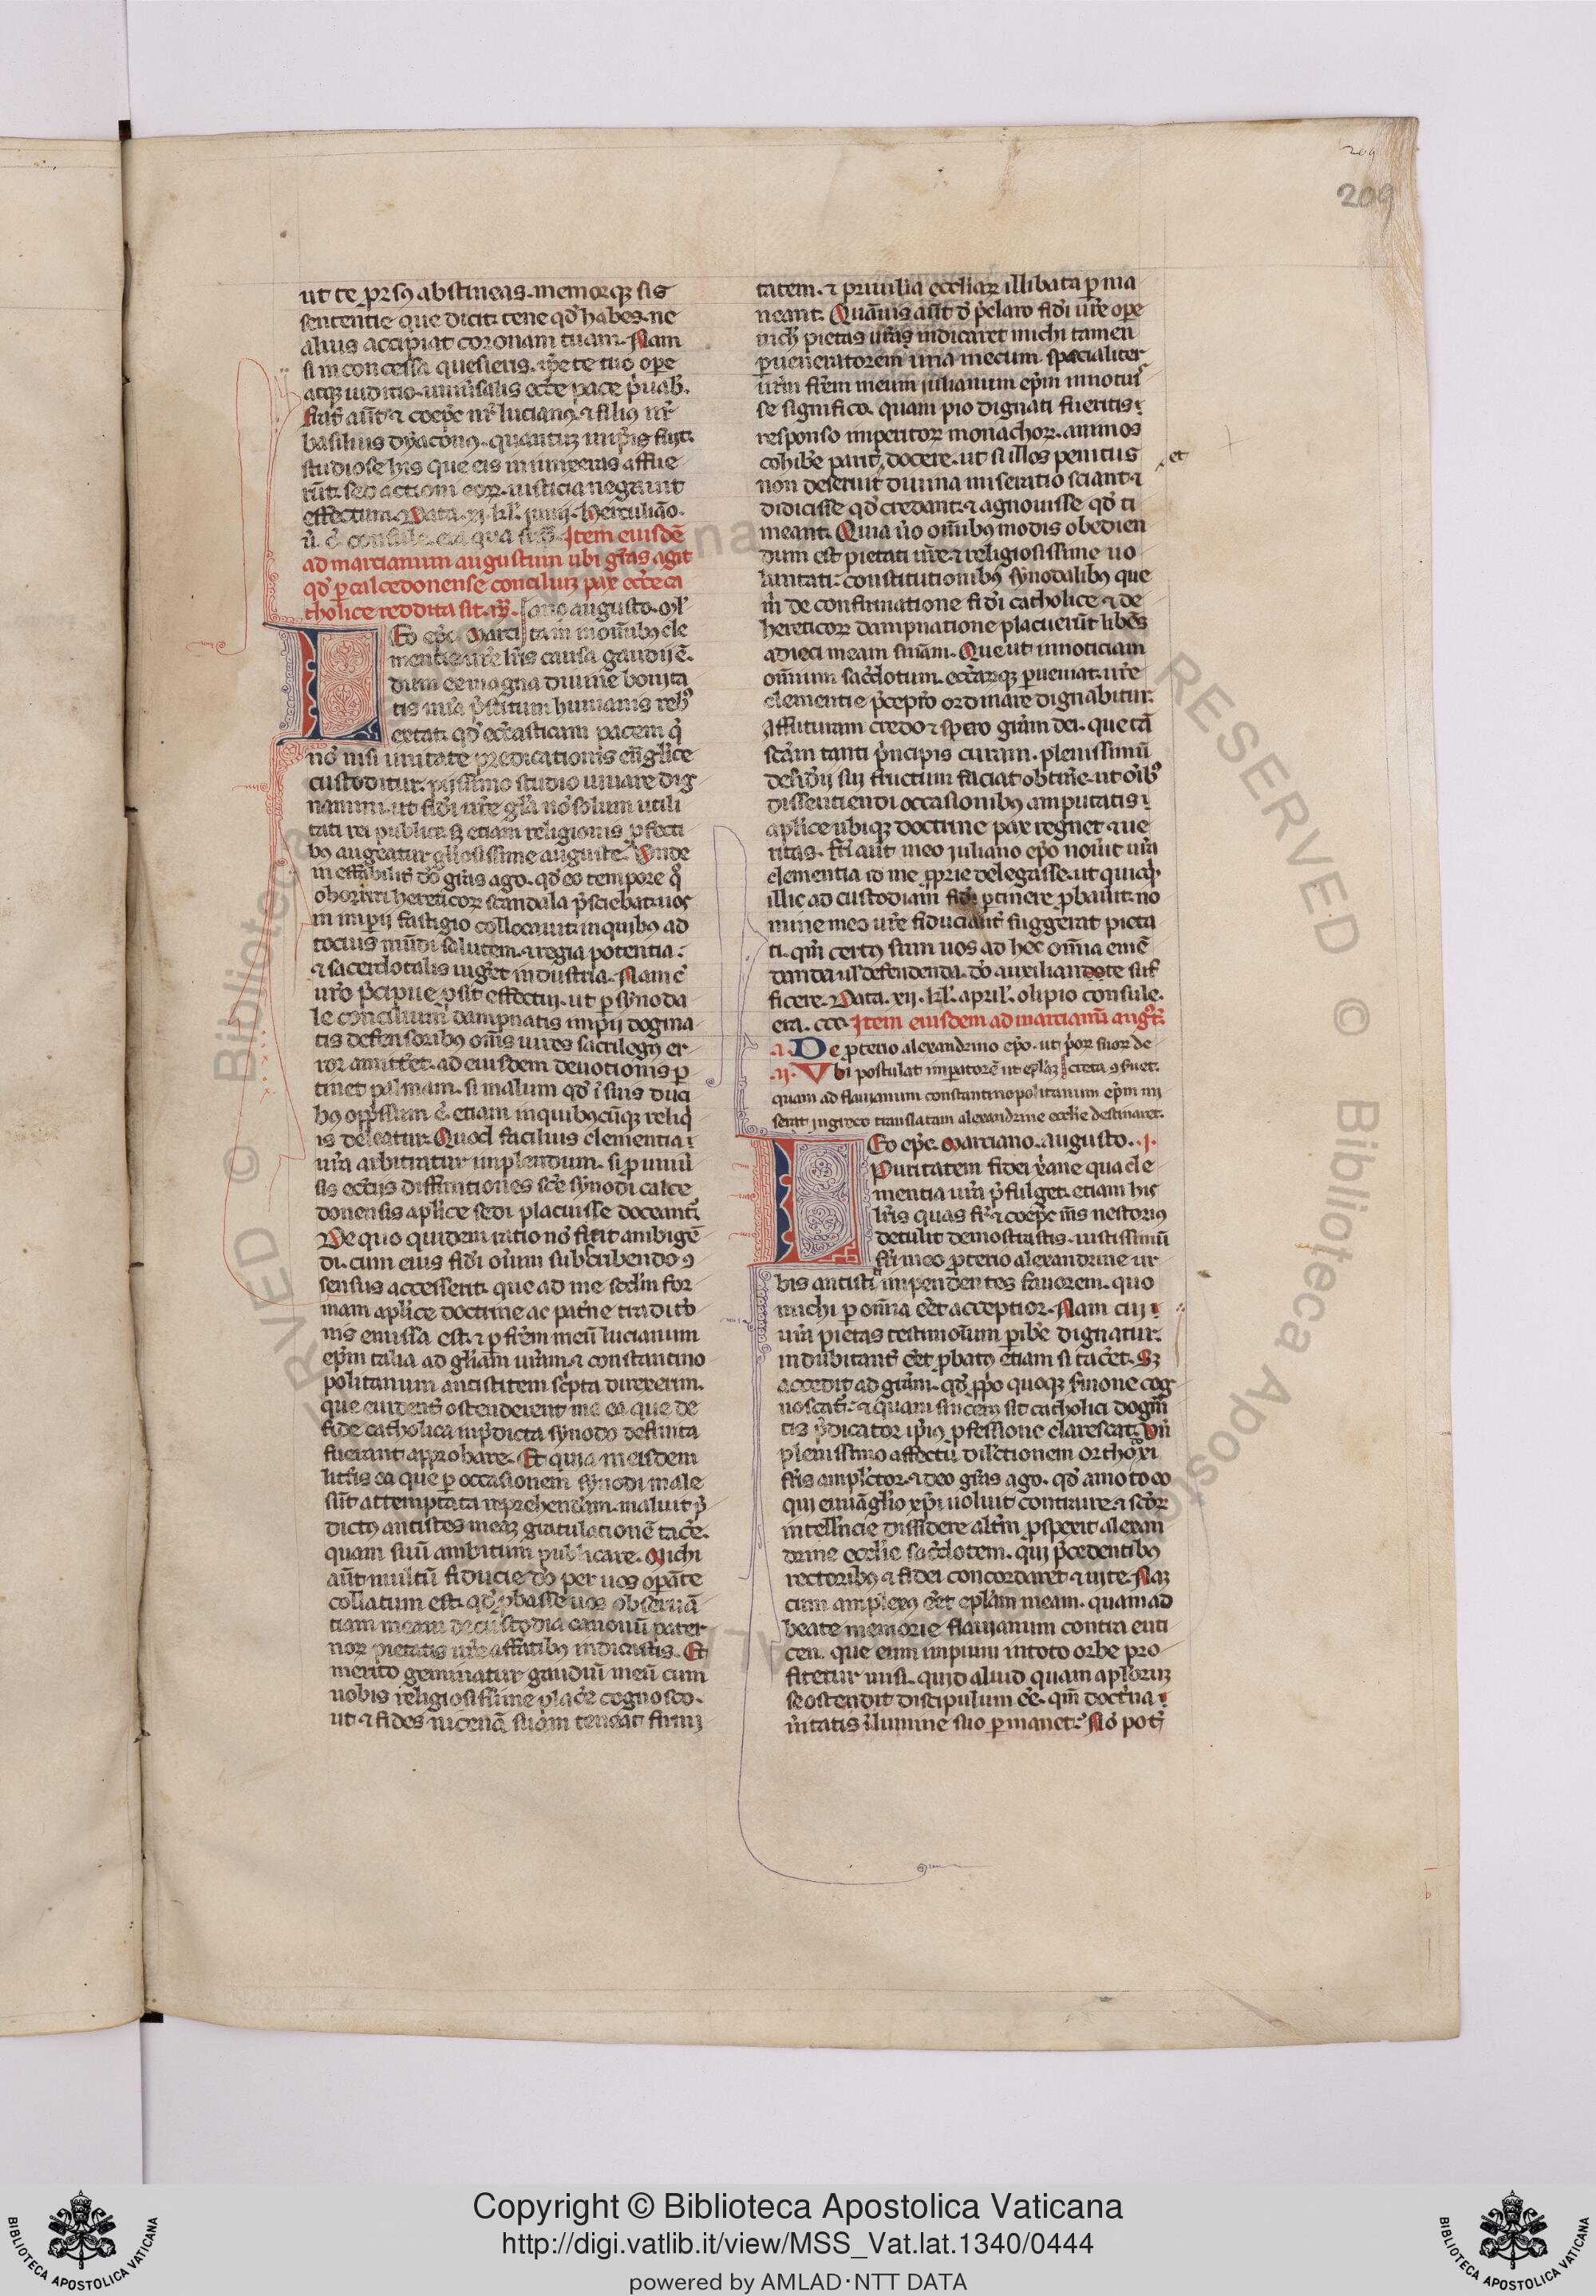 209
209
ut te prorsꝰ abstineas. memorqꝫ sis
sententie que dicit. tene qd̄ habes. ne
alius accipiat coronam tuam. Nam
si inconcessa quesieris. ip̄e te tuo ope
atqꝫ iuditio. uniu̓salis eccl̓e pace p̓uab̓.
Frat̓ aūt ⁊ coep̄c nr̄ lucianꝰ ⁊ filiꝰ nr̄
basilius dyaconꝰ. quantuꝫ in ip̄is fuit.
studiose his que eis iniunxeras affue
rūt. sed actioni eoꝝ iusticia negauit
effectum. Data. xj. kl̓. junij. Herculiāo.
Item eiusdē
ad marcianum augustum ubi gr̄as agit
qd̓ ꝑ calcedonense conciliuꝫ pax eccl̓e ca
tholice reddita sit. ano augusto.
Leo ep̄c Marci tam in om̄ibꝰ cle
mentie ur̄e lr̄is causa gaudij ē.
dum ee magna diuine bonita
tis mīa p̓stitum humanis rebꝰ
certat. qd̓ eccl̓asticam pacem q̓
nō nisi unitate predicationis eu̓ngl̓ice
custoditur. pijssimo studio iuuare dig
namini. ut fidei ur̄e gl̓a nō solum utili
tati rei publice. sꝫ etiam religionis ꝓfecti
bꝰ augeatur gl̓iosissime auguste. Unde
in effabilit̓ dō gr̄as ago. qd̓ eo tempore q̓
oboriri hereticoꝝ scandala p̓sciebat. uos
in imperij fastigio collocauit. in quibꝰ ad
tocius mūdi salutem. ⁊ regia potentia.
⁊ sacerdotalis uig̓et industria. Nam c̄
ur̄o p̓cipue ꝓsit effectui. ut ꝑ synoda
le concilium dampnatis impij dogma
tis defensoribꝰ om̄is uires sacrilegꝰ er
ror amitt̓et. ad eiusdem deuotionis ꝑ
tinet palmam. si malum qd̓ ī suis duci
bꝰ opp̓ssum ē. etiam in quibꝰcūqꝫ reliq̓
is deleatur. Quod facilius clementia
ur̄a arbitratur implendum. si ꝑ uniu̓
sis eccl̓ijs diffinitiones sc̄e synodi calce
donensis apl̓ice sedi placuisse doceant̓.
De quo quidem ratio nō fuit ambigē
di. cum eius fidei om̄ium subscribendo ꝯ
sensus accesserit. que ad me scd̄m for
mam apl̓ice doctrine ac pat̓ne traditō
nis emissa est. ⁊ ꝑ fr̄em meū lucianum
ep̄m talia ad gl̓iam ur̄am ⁊ constantino
politanum antistitem sc̓pta direxerim.
que euident̓ ostenderent me ea que de
fide catholica in p̓dicta synodo definita
fuerant approbare. Et quia in eisdem
litt̓is ea que ꝑ occasionem synodi male
sūt attemptata reprehenderam. maluit p̓
dictꝰ antistes meaꝫ gratulationē tac̓e.
quam suū ambitum publicare. Michi
aūt multū fiducie dō per uos op̓ante
collatum est. qd̓ ꝓbasse uos obseruā
tiam meam de custodia canonū pater
noꝝ pietatis ur̄e affatibꝰ indicastis. Et
merito geminatur gaudiū meū cum
uobis religiosissime plac̓e cognosco.
ut ⁊ fides nicena suam teneat firmi
tatem. ⁊ priuilia eccl̓iaꝝ illibata ꝑma
neant. Quāuis aūt d̓ p̓claro fidei ur̄e ope
mich̓ pietas ur̄a indicaret michi tamen
ꝑ ueneratorem ur̄ia mecum specialiter
ur̄m fr̄em meum julianum ep̄m innotuis
se significo. quam pio dignati fueritis
responso imperitoꝝ monachoꝝ. animos
cohib̓e parit̓ docere. ut si illos penitus et
non deseruit diuina miseratio sciant ⁊
didicisse qd̓ credant. ⁊ agnouisse qd̓ ti
meant. Quia u̓o om̄ibꝰ modis obedien
dum est pietati ur̄e. ⁊ religiosissime uo
luntati. constitutionibꝰ synodalibꝰ que
m̓ de confirmatione fidei catholice ⁊ de
hereticoꝝ dampnatione placuerūt libēs
adieci meam sn̄iam. Que ut in noticiam
om̄ium sac̓dotum. eccl̓iarqꝫ ꝑueniat. ur̄e
clementie p̓cepto ordinare dignabitur.
Affuturam credo ⁊ spero gr̄am dei. que tā
sc̄am tanti p̓ncipis curam. plenissimū
desid̓ij sui fructum faciat obtin̓e. ut om̄ibꝰ
dissentiendi occasionibꝰ amputatis
apl̓ice ubiqꝫ doctrine pax regnet ⁊ ue
ritas. Fr̄i aūt meo juliano ep̄o nou̓it ur̄a
clementia id me ꝓprie delegasse. ut quicq̓d
illic ad custodiam fidei ꝑtinere ꝓbau̓it. no
mine meo ur̄e fiduciaut̓ suggerat pieta
ti. qm̄ certꝰ sum uos ad hec om̄ia emē
danda ul̓ defendenda. dō auxiliandote suf
ficere. Data. xij. kl̓. april̓. olipio consule.
era. ccc. Item eiusdem ad marcianū augt̓.
.i. De ꝓterio alexandrino ep̄o. ut p̓or suoꝝ de
.ij. Vbi postulat imperatorē ut epl̓aꝫ creta ꝯseruet.
quam ad flauianum constantinopolitanum ep̄m mi
serat in greco translatam alexandrine eccl̓ie destinaret.
Leo ep̄c. Marciano. augusto. .i.
Puritatem fidei xp̄iane qua cle
mentia ur̄a p̓fulget. etiam his
lr̄is quas fr̄ ⁊ coep̄c m̄s nestorius
detulit demonstrastis. iustissimū
fr̄i meo ꝓterio alexandrine ur
bis antistiti impendentes fauorem. quo
michi ꝑ om̄ia e̓et acceptior. Nam cui
ur̄a pietas testimonium ꝑhib̓e dignatur.
indubitant̓ e̓et ꝓbatꝰ etiam si tac̓et. Sꝫ
accedit ad gr̄am. qd̓ ꝓprio quoqꝫ sermone cog
noscat̓. ⁊ quam sincerus sit catholici dogm̄
tis p̓dicator ip̄ius ꝓfessione clarescat. Vn̄
plenissimo affectu dil̓ctionem orthodoxi
fr̄is ampl̓ctor. ⁊ deo gr̄as ago. qd̓ amoto eo
qui eu̓uāgl̓io xp̄i uoluit contraire. ⁊ sc̄oꝝ
intell̓ncie dissidere alt̓m ꝓspexit alexan
drine eccl̓ie sac̓dotem. qui p̓cedentibꝰ
rectoribꝰ ⁊ fidei concordaret ⁊ uite. Naꝫ
cum amplexꝰ e̓et epl̓am meam. quam ad
beate memorie flauianum contra euti
cen. que eum impium in toto orbe pro
fitetur misi. quid aliud quam apl̓oruꝫ
se ostendit discipulum e̓e. qm̄ doct̓na
u̓itatis ī lumine suo ꝑmanet. Nō pot̓
Copyright © Biblioteca Apostolica Vaticana
http://digi.vatlib.it/view/MSS_Vat.lat.1340/0444
powered by AMLAD·NTT DATA
BIBLIOTECA APOSTOLICA VATICANA
BIBLIOTECA APOSTOLICA VATICANA